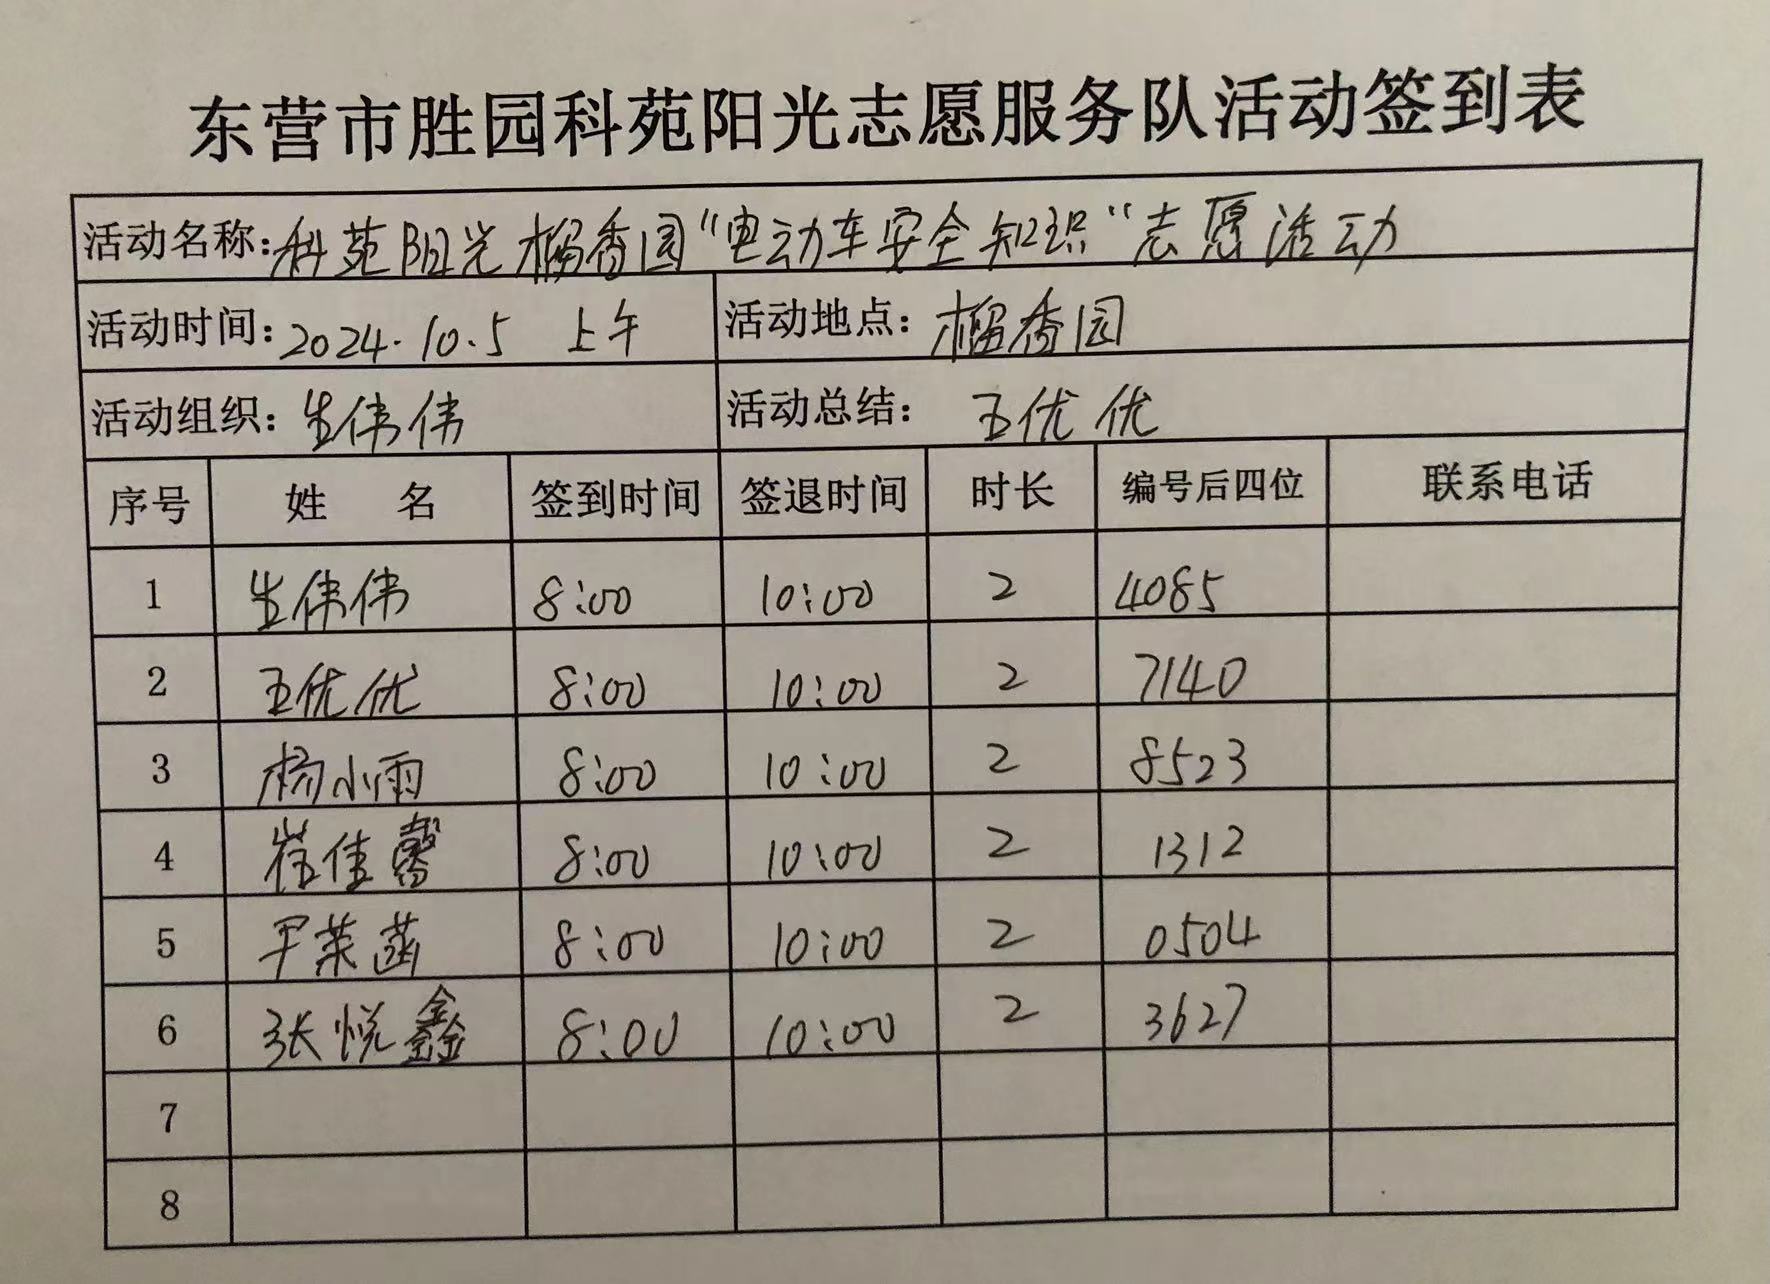 东营市胜园科苑阳光志愿服务队活动签到表
活动名称:科苑阳光榴香园"电动车安全知识"志愿活动
活动时间:2024.10.5 上午 活动地点:榴香园
活动组织:生伟伟 活动总结:王优优
序号 姓 名 签到时间 签退时间 时长 编号后四位 联系电话
1 生伟伟 8:00 10:00 2 4085
2 王优优 8:00 10:00 2 7140
3 杨小雨 8:00 10:00 2 8523
4 崔佳馨 8:00 10:00 2 1312
5 尹莱菡 8:00 10:00 2 0504
6 张悦鑫 8:00 10:00 2 3627
7
8